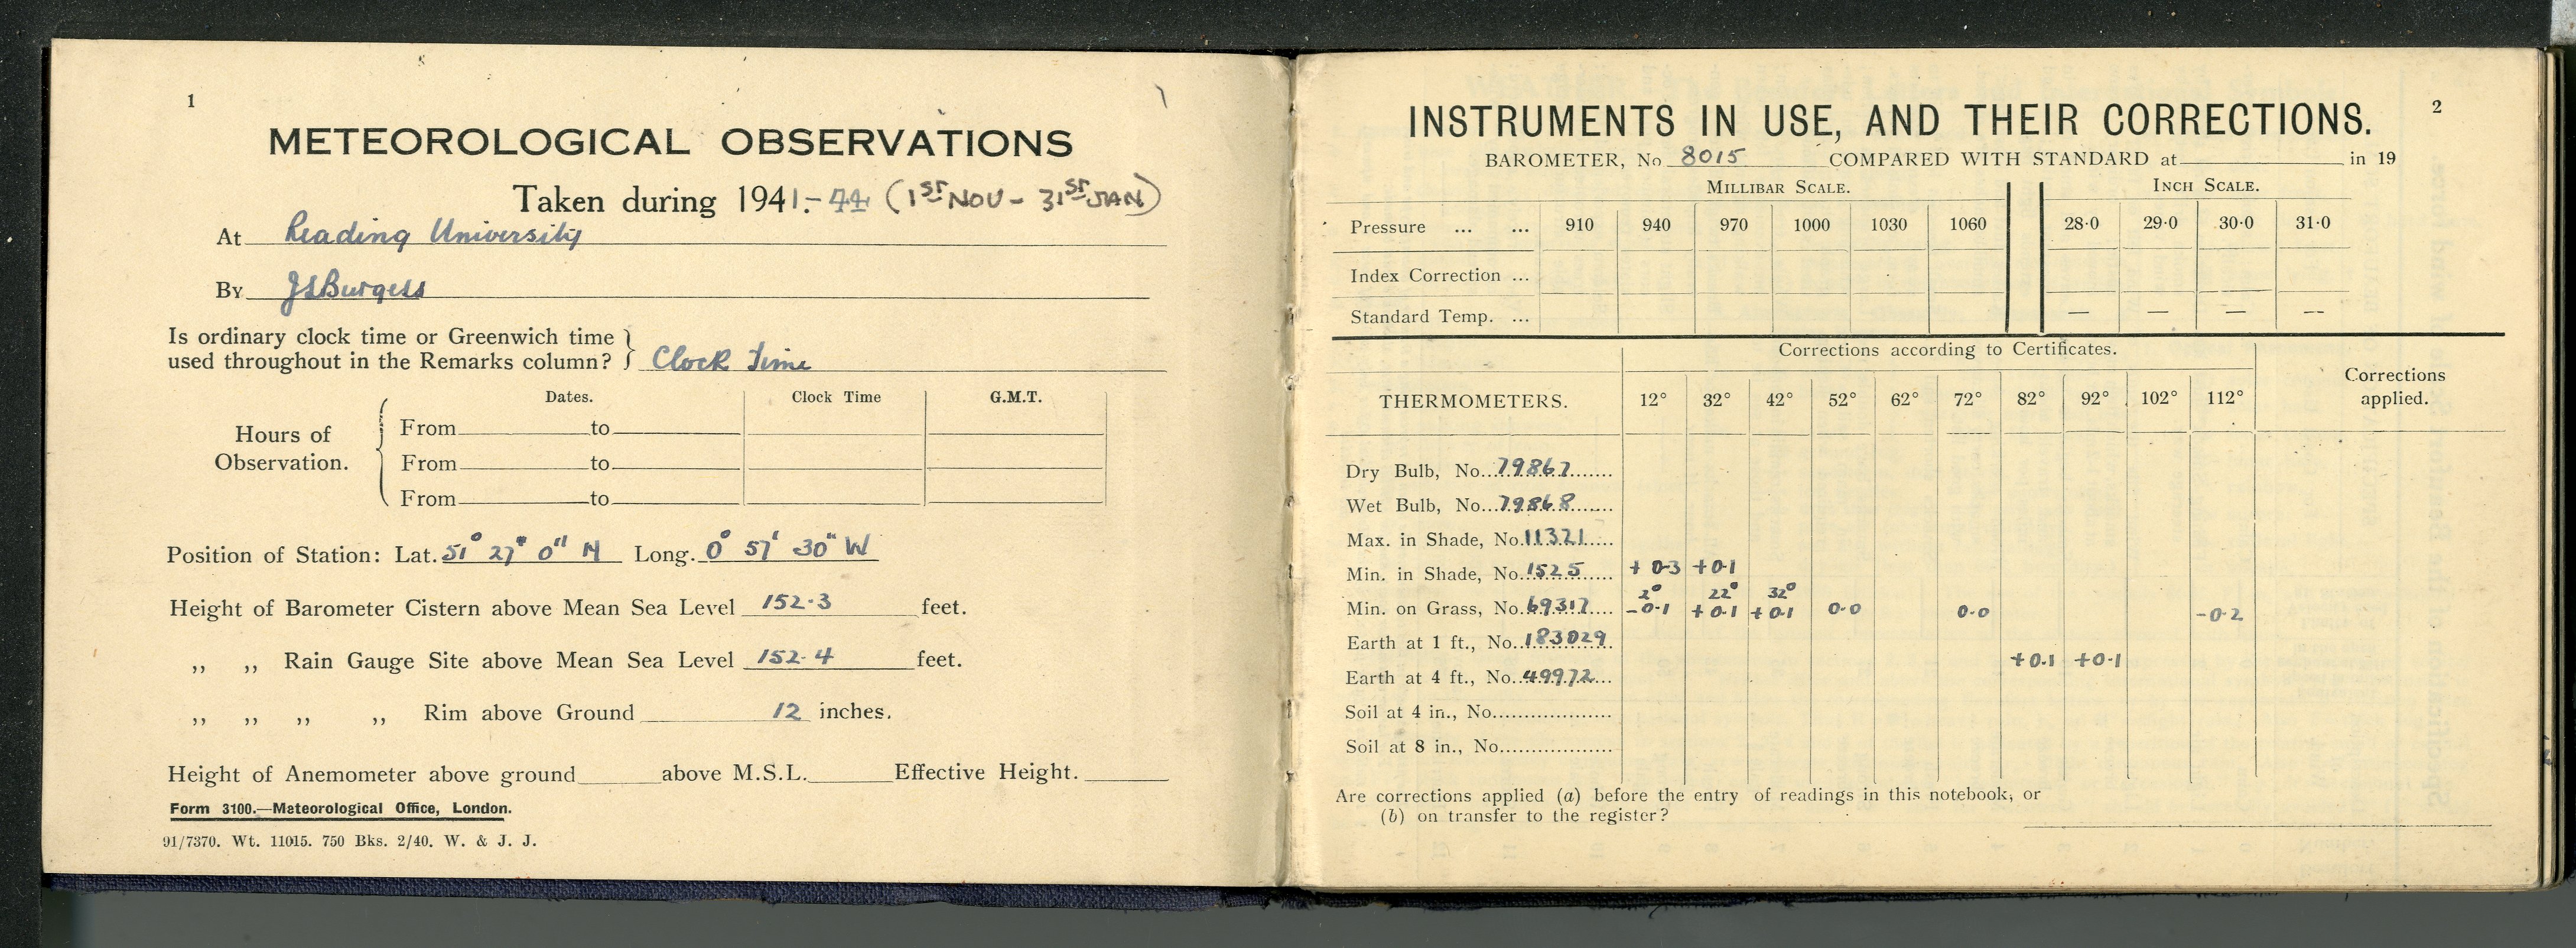 1
METEOROLOGICAL OBSERVATIONS
Taken during 1941.-44 (1ST NOV - 31ST JAN)
At Reading University
By JSBurgess
Is ordinary clock time or Greenwich time
used throughout in the Remarks column? } Clock Time
Dates. Clock Time G.M.T.
Hours of
Observation.
From to
From to
From to
Position of Station: Lat. 51° 27' 0" N Long. 0° 57' 30" W
Height of Barometer Cistern above Mean Sea Level 152.3 feet.
,, ,, Rain Gauge Site above Mean Sea Level 152.4 feet.
,, ,, ,, ,, Rim above Ground 12 inches.
Height of Anemometer above ground above M.S.L. Effective Height.
Form 3100.—Meteorological Office, London.
91/7370. Wt. 11015. 750 Bks. 2/40. W. & J. J.
2
INSTRUMENTS IN USE, AND THEIR CORRECTIONS.
BAROMETER, No 8015 COMPARED WITH STANDARD at in 19
MILLIBAR SCALE. INCH SCALE.
Pressure ... ... 910 940 970 1000 1030 1060 28·0 29·0 30·0 31·0
Index Correction ...
Standard Temp. ... — — — —
Corrections according to Certificates.
Corrections
applied.
THERMOMETERS. 12° 32° 42° 52° 62° 72° 82° 92° 102° 112°
Dry Bulb, No...79867
Wet Bulb, No...79868
Max. in Shade, No.11321
Min. in Shade, No.1525 + 0.3 +0.1
2° 22° 32°
Min. on Grass, No.69317 -0.1 +0.1 +0.1 0.0 0.0 -0.2
Earth at 1 ft., No.183029
+0.1 +0.1
Earth at 4 ft., No.49972
Soil at 4 in., No.
Soil at 8 in., No.
Are corrections applied (a) before the entry of readings in this notebook, or
(b) on transfer to the register?